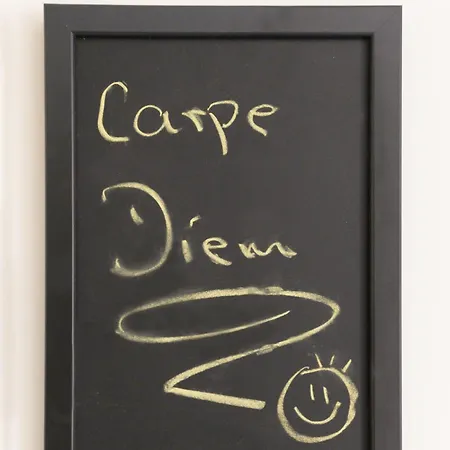 Carpe
Diem